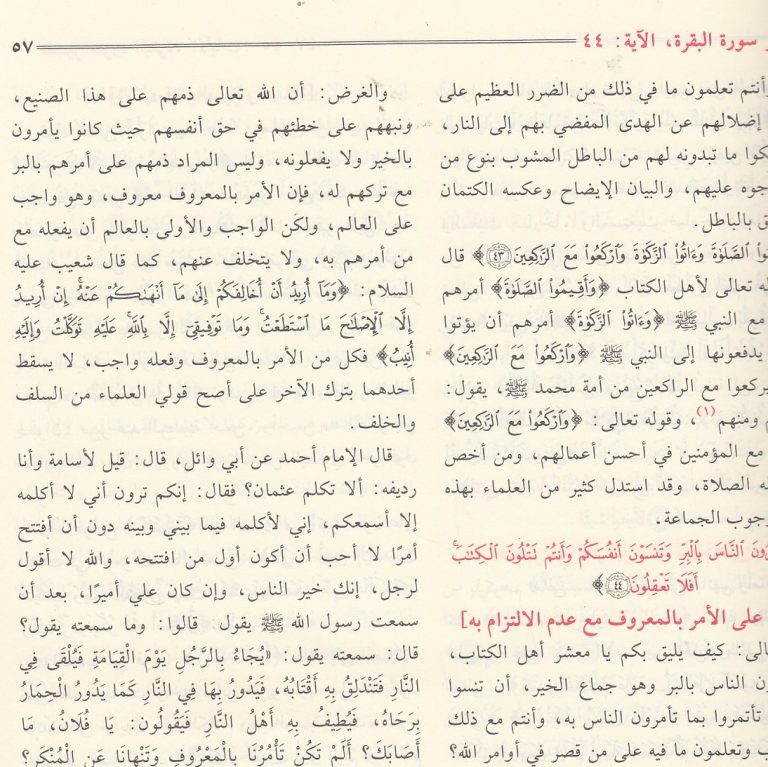 سورة البقرة، الآية: ٤٤
٥٧
وأنتم تعلمون ما في ذلك من الضرر العظيم على
إضلالهم عن الهدى المفضي بهم إلى النار،
ما تبدونه لهم من الباطل المشوب بنوع من
عليهم، والبيان الإيضاح وعكسه الكتمان
بالباطل.
ٱلصَّلَوٰةَ وَءَاتُوا۟ ٱلزَّكَوٰةَ وَٱرْكَعُوا۟ مَعَ ٱلرَّٰكِعِينَ ٤٣﴾ قال
تعالى لأهل الكتاب ﴿وَأَقِيمُوا۟ ٱلصَّلَوٰةَ﴾ أمرهم
مع النبي ﷺ ﴿وَءَاتُوا۟ ٱلزَّكَوٰةَ﴾ أمرهم أن يؤتوا
يدفعونها إلى النبي ﷺ ﴿وَٱرْكَعُوا۟ مَعَ ٱلرَّٰكِعِينَ﴾
يركعوا مع الراكعين من أمة محمد ﷺ، يقول:
ومنهم(١)، وقوله تعالى: ﴿وَٱرْكَعُوا۟ مَعَ ٱلرَّٰكِعِينَ﴾
مع المؤمنين في أحسن أعمالهم، ومن أخص
الصلاة، وقد استدل كثير من العلماء بهذه
الجماعة.
ٱلنَّاسَ بِٱلْبِرِّ وَتَنسَوْنَ أَنفُسَكُمْ وَأَنتُمْ تَتْلُونَ ٱلْكِتَٰبَ ۚ
أَفَلَا تَعْقِلُونَ ٤٤﴾
على الأمر بالمعروف مع عدم الالتزام به]
كيف يليق بكم يا معشر أهل الكتاب،
الناس بالبر وهو جماع الخير، أن تنسوا
تأتمروا بما تأمرون الناس به، وأنتم مع ذلك
وتعلمون ما فيه على من قصر في أوامر الله؟
والغرض: أن الله تعالى ذمهم على هذا الصنيع،
ونبههم على خطئهم في حق أنفسهم حيث كانوا يأمرون
بالخير ولا يفعلونه، وليس المراد ذمهم على أمرهم بالبر
مع تركهم له، فإن الأمر بالمعروف معروف، وهو واجب
على العالم، ولكن الواجب والأولى بالعالم أن يفعله مع
من أمرهم به، ولا يتخلف عنهم، كما قال شعيب عليه
السلام: ﴿وَمَآ أُرِيدُ أَنْ أُخَالِفَكُمْ إِلَىٰ مَآ أَنْهَىٰكُمْ عَنْهُ ۚ إِنْ أُرِيدُ
إِلَّا ٱلْإِصْلَٰحَ مَا ٱسْتَطَعْتُ ۚ وَمَا تَوْفِيقِىٓ إِلَّا بِٱللَّهِ ۚ عَلَيْهِ تَوَكَّلْتُ وَإِلَيْهِ
أُنِيبُ﴾ فكل من الأمر بالمعروف وفعله واجب، لا يسقط
أحدهما بترك الآخر على أصح قولي العلماء من السلف
والخلف.
قال الإمام أحمد عن أبي وائل، قال: قيل لأسامة وأنا
رديفه: ألا تكلم عثمان؟ فقال: إنكم ترون أني لا أكلمه
إلا أسمعكم، إني لأكلمه فيما بيني وبينه دون أن أفتتح
أمرًا لا أحب أن أكون أول من افتتحه، والله لا أقول
لرجل، إنك خير الناس، وإن كان علي أميرًا، بعد أن
سمعت رسول الله ﷺ يقول: قالوا: وما سمعته يقول؟
قال: سمعته يقول: «يُجَاءُ بِالرَّجُلِ يَوْمَ الْقِيَامَةِ فَيُلْقَى فِي
النَّارِ فَتَنْدَلِقُ بِهِ أَقْتَابُهُ، فَيَدُورُ بِهَا فِي النَّارِ كَمَا يَدُورُ الْحِمَارُ
بِرَحَاهُ، فَيُطِيفُ بِهِ أَهْلُ النَّارِ فَيَقُولُونَ: يَا فُلَانُ، مَا
أَصَابَكَ؟ أَلَمْ تَكُنْ تَأْمُرُنَا بِالْمَعْرُوفِ وَتَنْهَانَا عَنِ الْمُنْكَرِ؟